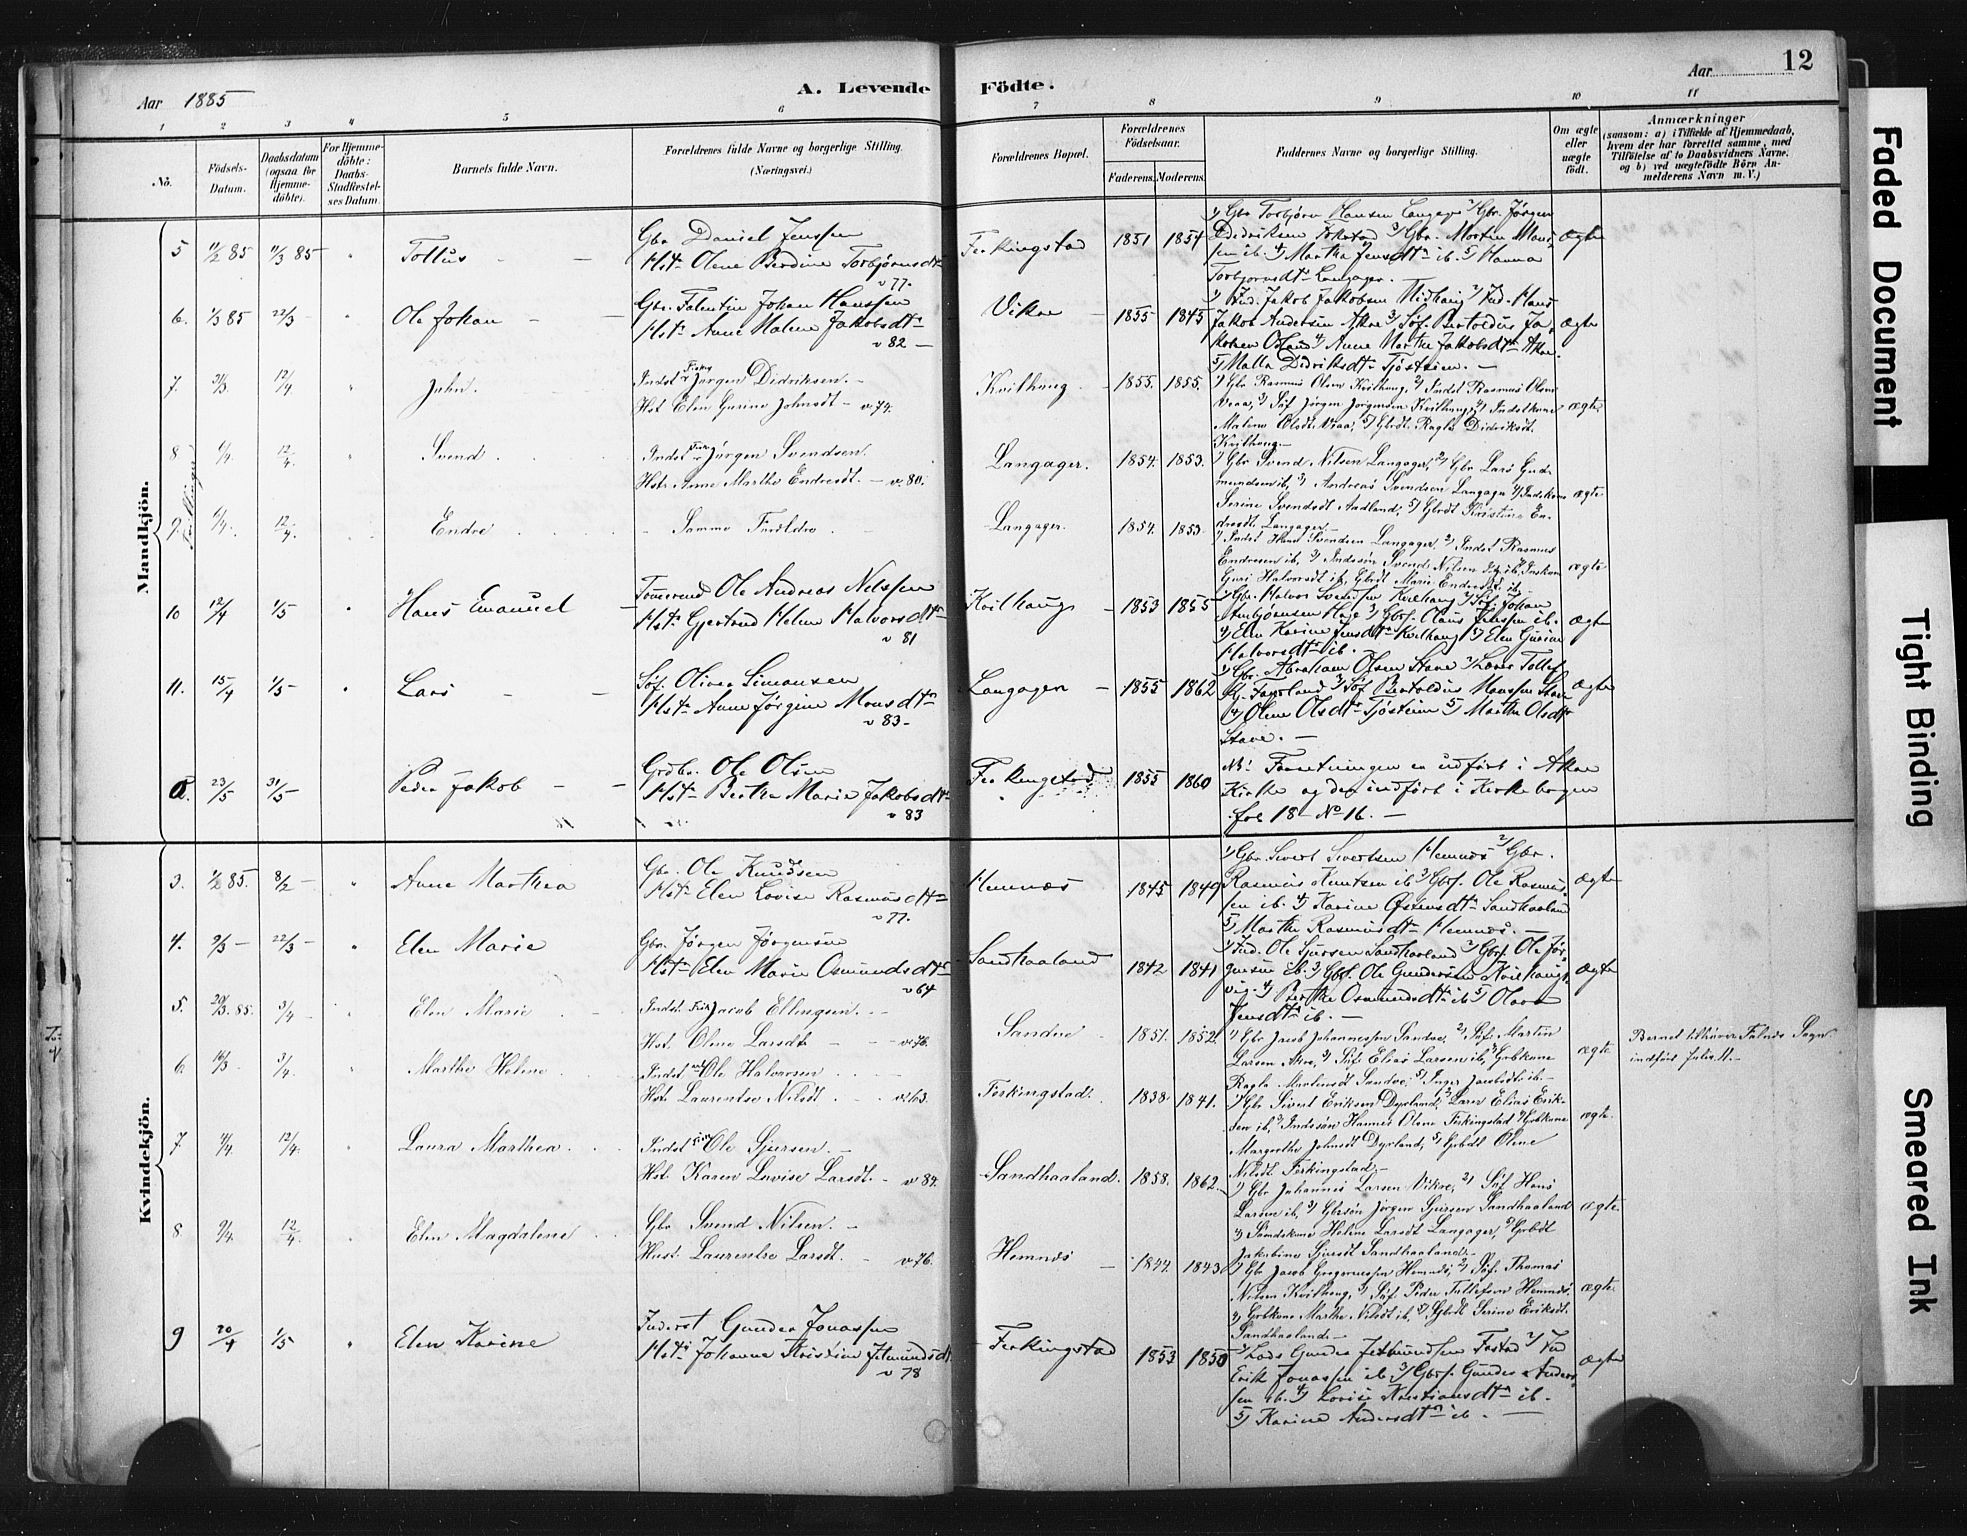 Aar 1885
A. Levende Födte.
Aar
12
1 2 3 4 5 6 7 8 9 10 11
No.
Födsels-Datum.
Daabsdatum (ogsaa for Hjemme-döbte).
For Hjemme-döbte: Daabs-Stadfæstel-ses Datum.
Barnets fulde Navn.
Forældrenes fulde Navne og borgerlige Stilling. (Næringsvei.)
Forældrenes Bopæl.
Forældrenes Födselsaar.
Faderens. Moderens.
Faddernes Navne og borgerlige Stilling.
Om ægte eller uægte födt.
Anmærkninger
(saasom: a) i Tilfælde af Hjemmedaab, hvem der har forrettet samme, med Tilföielse af to Daabsvidners Navne, og b) ved uægtefödte Börn Anmelderens Navn m. V.)
Mandkjön.
5 11/2 85 11/3 85 " Tollus
Gbr Daniel Jenssen
Hst. Olene Berdine Torbjørnsdtr
v 77.
Ferkingstad 1851 1854
1) Gbr Torbjørn Hansen Langager 2) Gbr. Jørgen
Didriksen 3) Gbr. Morten
ib. 4) Martha Jensdtr ib. 5) Hanna
Torbjørnsdtr Langager.
ægte
6. 1/3 85 22/3 " Ole Johan
Gbr. Falentin Johan Hanssen
Hst. Anne Malene Jakobsdtr
v 82
Vikre 1855 1845
1) Ind. Jakob Jakobsen Midhaug 2) Ind. Hans
Jakob Andersen Akre 3) Søf. Bertoldus Ja-
kobsen 4) Anne Marthe Jakobsdtr Akre.
5) Malla Didriksdtr Tjøstheim.
ægte
7. 31/3 12/4 " John.
Indst Fisker Jørgen Didriksen.
Hst Elen Gurine Johnsdt v. 74.
Kvilhaug 1855. 1855.
1) Gbr Rasmus Olsen Kvilhaug, 2) Indst Rasmus Olsen
Vraa, 3) Søf Jørgen Jørgensen Kvilhaug, 4) Indstkone
Malene Olsdt Vraa, 5) Gbrdt Ragla Didriksdt.
Kvilhaug.
ægte
8 4/4. 12/4. " Svend
Indst Jørgen Svendsen.
Hst. Anne Marthe Endresdt. v. 80.
Langager. 1854. 1853.
1) Gbr Svend Nilsen Langager, 2) Gbr Lars Gud-
mundsen ib, 3) Andreas Svendsen Langager 4) Indstkone
Serine Svendsdt Aadland, 5) Gbrdt Kristine En-
dresdt Langager.
ægte
9. 4/4. 12/4. Endre
Samme Forældre
Langager. 1854. 1853.
1) Indst Hans Svendsen Langager, 2) Indst Rasmus
Endresen ib, 3) Indsøn Svend Nilsen ib,
Guri Halvorsdt ib, Gbrdt Marie Endresdt ib.
ægte
10 12/4 1/5 " Hans Emanuel
Tømmermd Ole Andreas Nilssen
Hst. Gjertrud Helene Halvorsdtr
v 81
Kvilhaug 1853 1855
1) Gbr. Halvor Svendsen Kvilhaug 2) Søf. Johan
3) Gbrs. Olaus Jenssen ib.
4) Elen Karine Jensdtr Kvilhaug 5) Elen Gurine
Halvorsdtr ib.
ægte
11. 15/4 1/5 " Lars
Søf. Oliver Simonsen
Hst. Anne Jørgine Monsdtr
v 83
Langager 1855 1862
1) Gbr. Abraham Olsen Stave 2) Lærer Tollef
3) Søf Bertoldus Monssen Stave
4) Olene Olsdtr Tjøsteim 5) Marthe Olsdtr
Stave.
ægte
a. 23/5 31/5 Peder Jakob
Grdbr. Ole Olsen
Hst. Berthe Marie Jakobsdtr
v 83
Ferkingstad 1855 1860
NB! Forretningen er udført i Akre
Kirke og der indført i Kirkebogen
fol 18 No 16.
Kvindekjön.
3. 1/2 85. 8/2 " Anne Marthea
Gbr. Ole Knudsen
Hst. Elen Lovise Rasmusdtr
v 77.
Hemnæs 1845 1849
1) Gbr Sivert Sivertsen Hemnæs 2) Gbr.
Rasmus Knutsen ib 3) Gbrs. Ole Rasmus-
sen ib. 4) Karine Østensdtr Sandhaaland
5) Marthe Rasmusdtr Hemnæs.
ægte
4. 9/3 22/3 " Elen Marie
Gbr. Jørgen Jørgensen
Hst. Elen Marie Osmundsdtr
v 64
Sandhaaland 1842 1841
1) Ind. Ole Sjursen Sandhaaland 2) Gbrs. Ole Jør-
gensen ib. 3) Gbrs. Ole Gundersen Kvilhaugs-
vig. 4) Berthe Osmundsdtr ib 5) Olava
Jensdtr ib.
ægte
5. 20/3. 85. 3/4 Elen Marie
Indst. Fisk Jacob Ellingsen.
Hst. Olene Larsdt v. 76.
Sandve 1851. 1852.
1) Gbr Jacob Johannessen Sandve, 2) Søf. Martin
Larsen Akre, 3) Søf Elias Larsen ib, 4) Grbkone
Ragla Martinsdt Sandve, 5) Inger Jacobsdt ib.
ægte
Barnet tilhører Falnæs Sogn
indført
6 16/3 3/4. Marthe Helene
Indst. Ole Halvorsen
Hst. Laurentse Nilsdt v. 63.
Ferkingstad. 1838 1841.
1) Gbr Sivert Eriksen Dyrland, 2) Lærer Elias Erik-
sen ib, 3) Indsøn Hannes Olsen Ferkingstad 4) Gbkone
Margrethe Johnsdt Dyrland, 5) Gbrdt Olene
Nilsdt. Ferkingstad.
ægte.
7 4/4. 12/4. " Laura Marthea
Indst Fisk Ole Sjursen.
Hst. Karen Lovise Larsdt. v 84.
Sandhaaland. 1858. 1862.
1) Gbr Johannes Larsen Vikre, 2) Søf Hans
Larsen ib, 3) Gbrsøn Jørgen Sjursen Sandhaaland
4) Helene Larsdt Langager, 5) Gbrdt
Jakobine Sjursdt Sandhaaland.
ægte
8 9/4. 12/4. Elen Magdalene
Gbr Svend Nilsen.
Hust. Laurentse Larsdt. v 76.
Hemnæs 1844. 1843
1) Gbr Jacob Gregoriussen Hemnæs, 2) Søf. Thomas
Nilsen Kvilhaug, 3) Søf. Peder Tollefsen Hemnæs.
4) Grbkone Marthe Nilsdt ib, 5) Gbrdt Serine Eriksdt.
Sandhaaland.
ægte
9 20/4 1/5 " Elen Karine
Inderst Gunder Jonassen
Hst. Johanne Kristine Jetmundsdt
v 78
Ferkingstad 1853 1850
1) Lods Gunder Jetmundsen 2) Ind
Erik Jonassen ib 3) Gbrs. Gunder Anders-
sen ib. 4) Lovise Kristiansdtr ib.
5) Karine Andersdtr ib.
ægte
Faded Document
Tight Binding
Smeared Ink